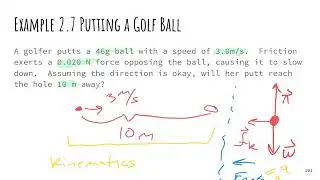 Example 2.7 Putting a Golf Ball
A golfer putts a 46g ball with a speed of 3.0m/s. Friction
exerts a 0.020 N force opposing the ball, causing it to slow
down. Assuming the direction is okay, will her putt reach
the hole 10 m away?
3 m/s
10 m
Kinematics
n
f k
w